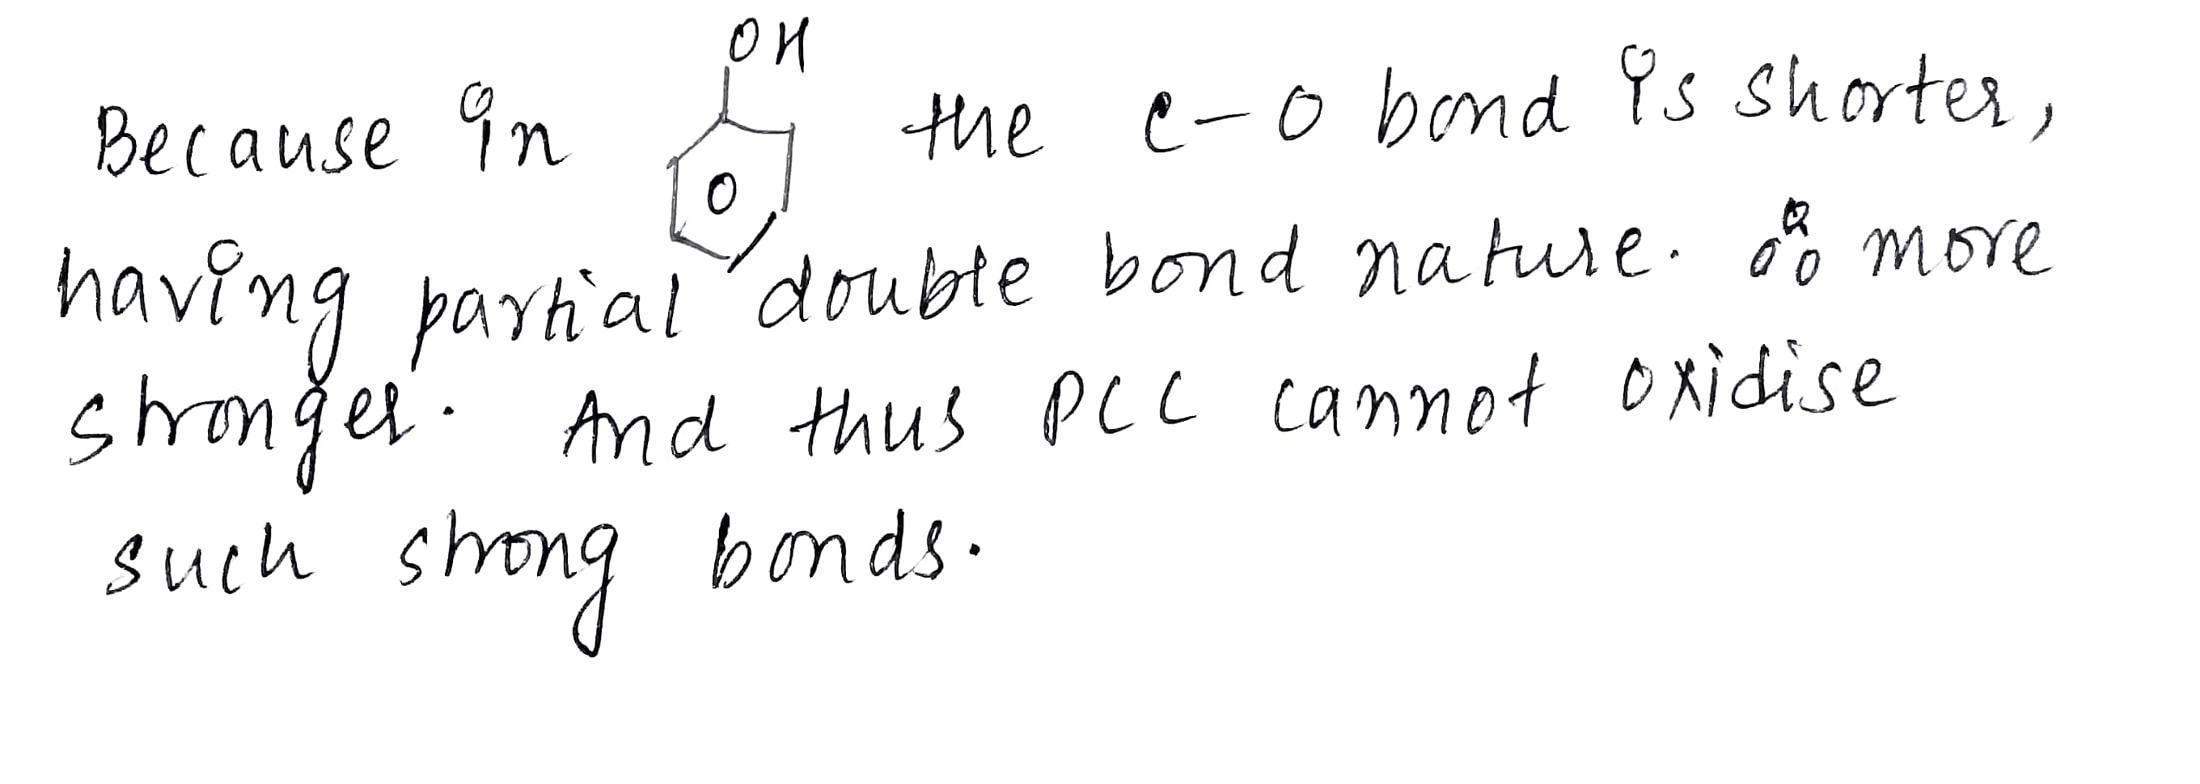 OH
Because in the C-O bond is shorter,
having partial double bond nature. ∴ more
stronger. And thus PCC cannot oxidise
such strong bonds.